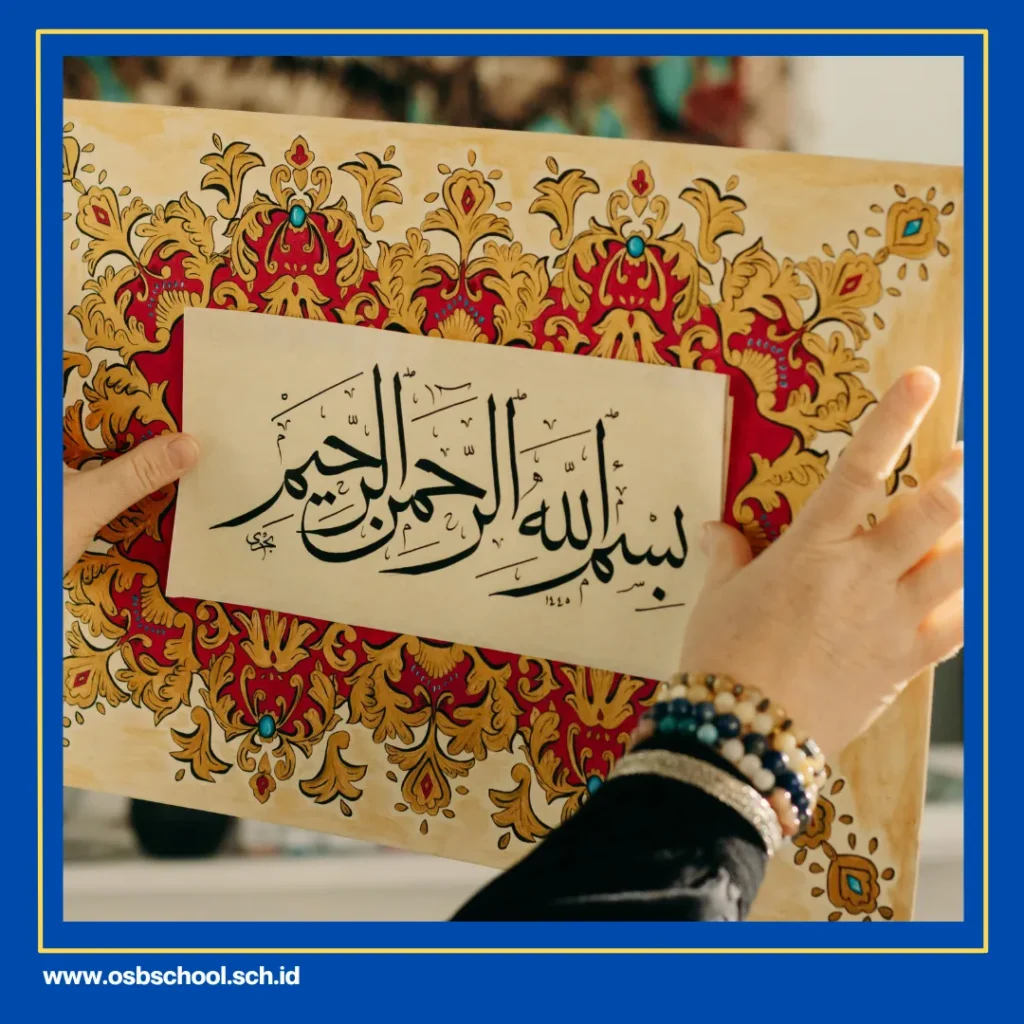 بسم الله الرحمن الرحيم
١٤٤٥
www.osbschool.sch.id